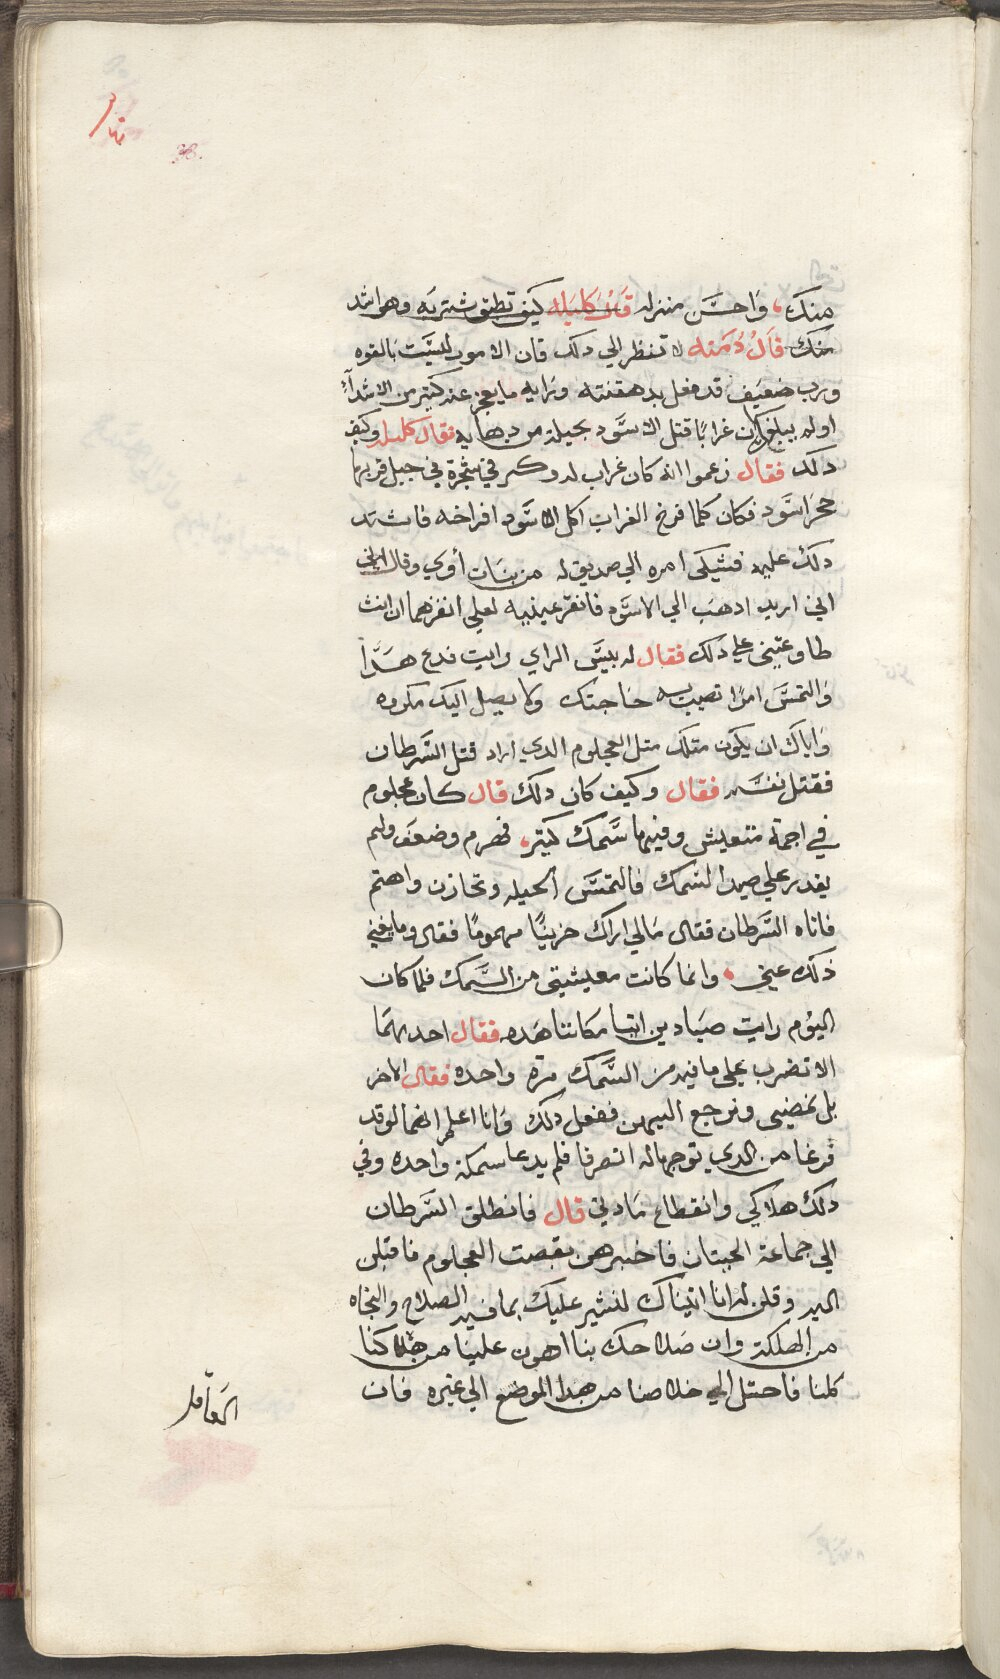 منك، واحسَّن منزله قال كليله كيف تطيق شتربه وهو اشد
منك قال دُمَنه لا تنظر الي دلك فان الامور ليسَّت بالقوه
ورب ضعيف قد فعل بدهقنته ورايه ما يعجز عنه كتير من الاشدآء
اولم يبلغك ان غرابًا قتل الاسَّود بحيلة من دهايه فقال كليله وكيف
دلك فقال زعموا انه كان غراب له وكر في شجرة في جبل قربها
جحر اسَّود فكان كلما فرخ الغراب اكل الاسَّود افراخه فاشتد
دلك عليه فشكي امره الي صديق له من بنات أوي وقال له
اني اريد ادهب الي الاسَّود فانقر عينيه لعلي انقرهما ان انت
طاوعتني علي دلك فقال له بيسَّ الراي رايت فدع هدا
والتمسَّ امرًا تصيب به حاجتك ولا يصل اليك مكروه
واياك ان يكون متلك متل العجلوم الدي اراد قتل السَّرطان
فقتل نفسَّه فقال وكيف كان دلك قال كان عجلوم
في اجمة متعيش وفيها سَّمك كتير، فهرم وضعف ولم
يقدر علي صيد السَّمك فالتمسَّ الحيله وتحازن واهتم
فاتاه السَّرطان فقال مالي اراك حزينًا مهمومًا فقال وما يمنعني
ذلك عني، وانما كانت معيشتي من السَّمك فلما كان
اليوم رايت صيادين اتيا مكاننا هده فقال احدهما
الا تضرب علي ما فيه من السَّمك مرة واحده فقال الاخر
بل نمضي ونرجع اليهن ففعل دلك وانا اعلم انهما لو قد
فرغا من الدي توجها له انصرفا فلم يدعا سمكة واحده وفي
دلك هلاكي وانقطاع مادتي قال فانطلق السَّرطان
الي جماعة الحيتان فاخبرهن بقصت العجلوم فاقبلن
اليه وقلن له انا اتيناك لتشير عليك بما فيه الصلاح والنجاه
من الهلكة وان صلاحك بنا اهون علينا من هلاكنا
كلنا فاحتل الي خلاصنا من هدا الموضع الي غيره فان
العاقل